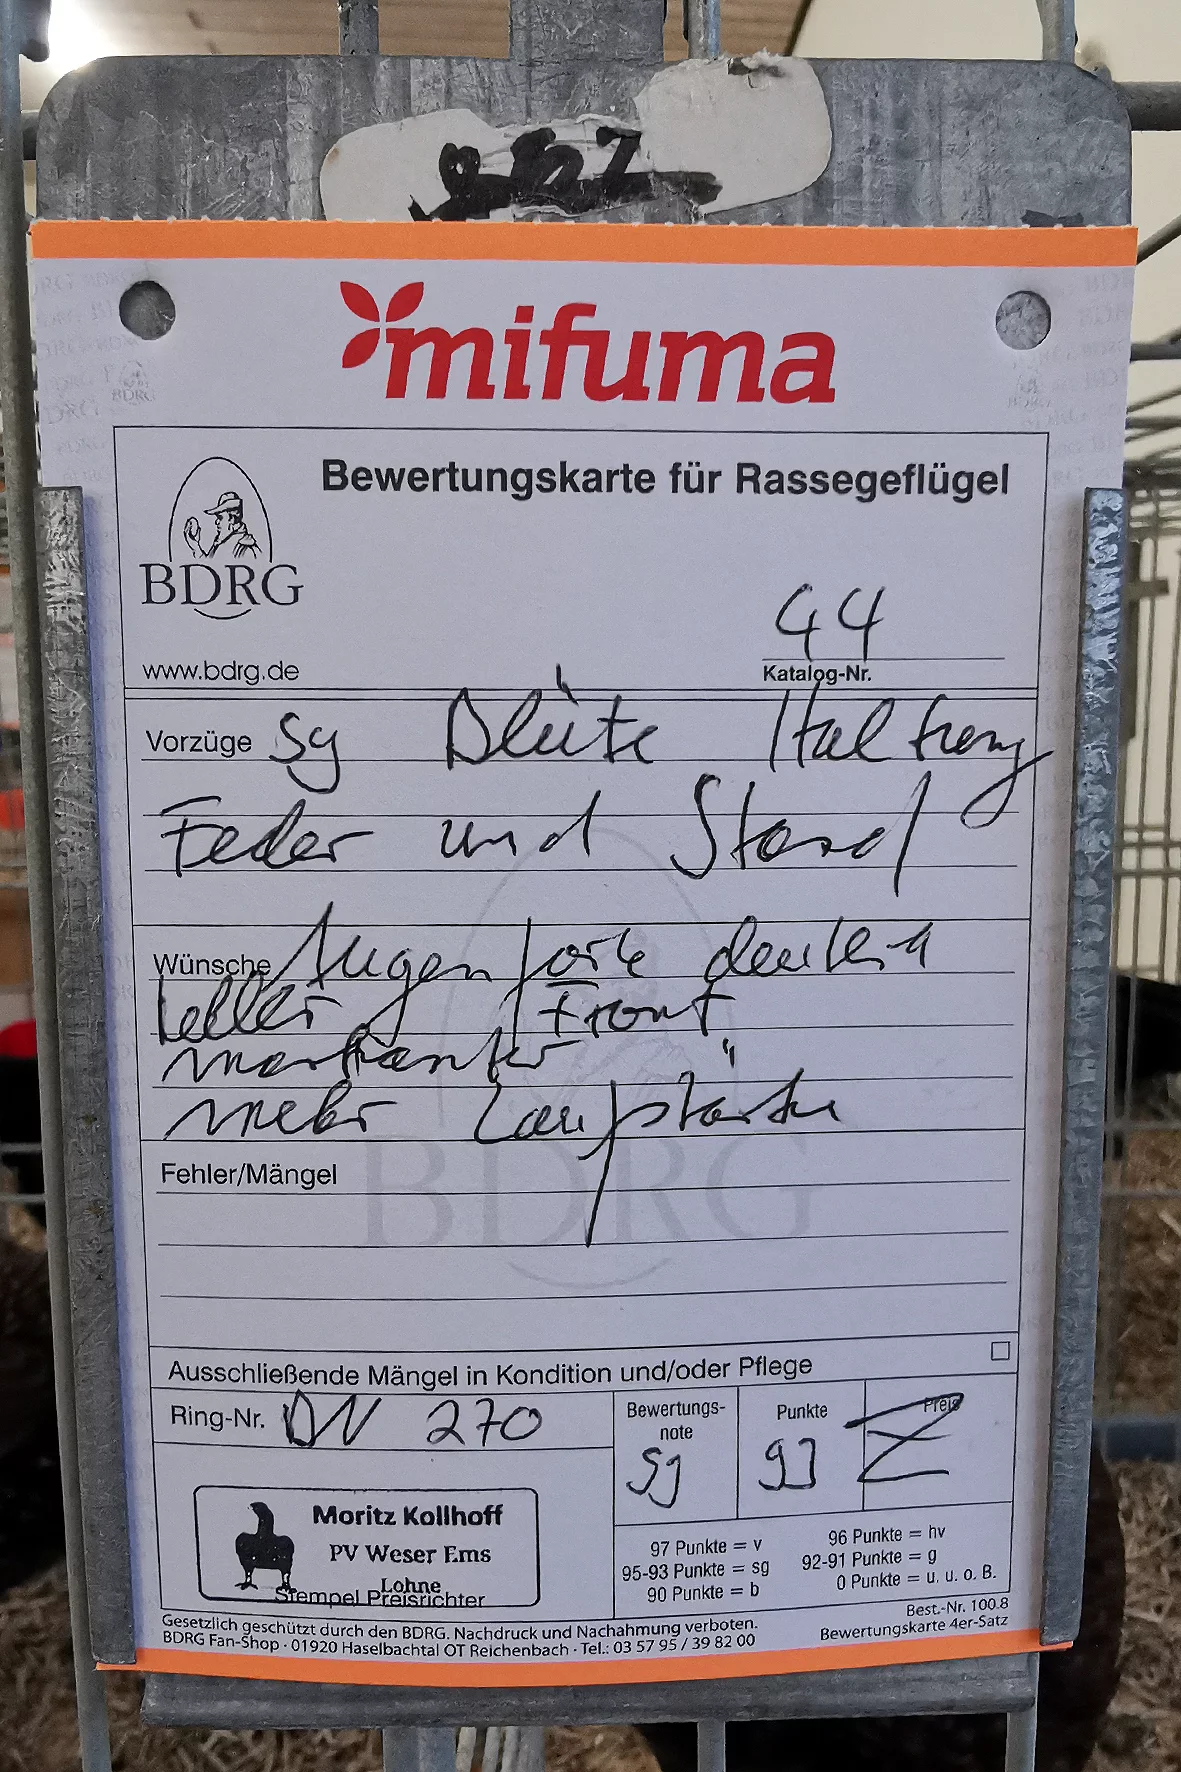 mifuma
Bewertungskarte für Rassegeflügel
BDRG
44
www.bdrg.de
Katalog-Nr.
Vorzüge sg Blüte Haltung
Feder und Stand
Wünsche Augenfarbe deutlich
heller Front
markanter
mehr Laufstärke
Fehler/Mängel
Ausschließende Mängel in Kondition und/oder Pflege
Ring-Nr. DV 270
Bewertungs-
note
sg
Punkte
93
Preis
Z
Moritz Kollhoff
PV Weser Ems
Lohne
Stempel Preisrichter
97 Punkte = v
96 Punkte = hv
95-93 Punkte = sg
92-91 Punkte = g
90 Punkte = b
0 Punkte = u. u. o. B.
Gesetzlich geschützt durch den BDRG. Nachdruck und Nachahmung verboten.
BDRG Fan-Shop · 01920 Haselbachtal OT Reichenbach · Tel.: 03 57 95 / 39 82 00
Best.-Nr. 100.8
Bewertungskarte 4er-Satz